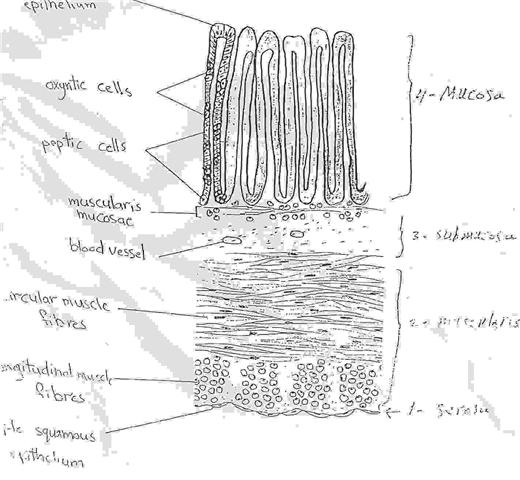 epithelium
oxyntic cells
peptic cells
muscularis
mucosae
blood vessel
ircular muscle
fibres
ongitudinal muscle
fibres
ple squamous
epithelium
4- Mucosa
3- submucosa
2- muscularis
1- serosa